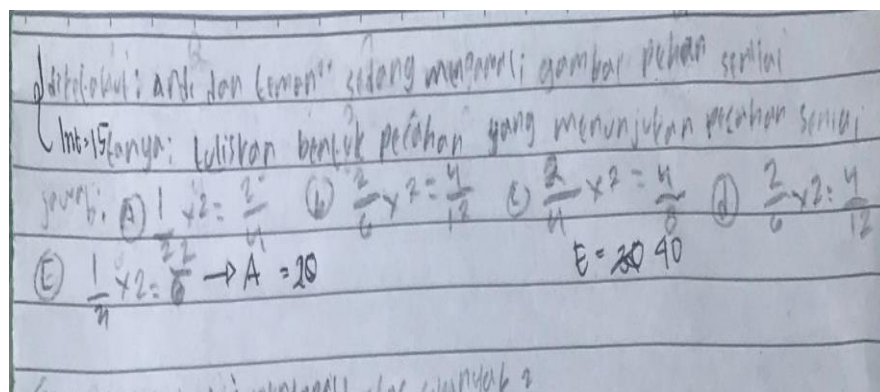 diketahui: andi dan teman" sedang mengamati gambar pehan senilai
Int=15 tanya: tuliskan bentuk pecahan yang menunjukan pecahan senilai
jawab: (A) 1/2 x2 = 2/4 (b) 2/6 x2 = 4/12 (c) 2/4 x2 = 4/8 (d) 2/6 x2 = 4/12
(E) 1/4 x2 = 2/8 → A = 20 E = 40